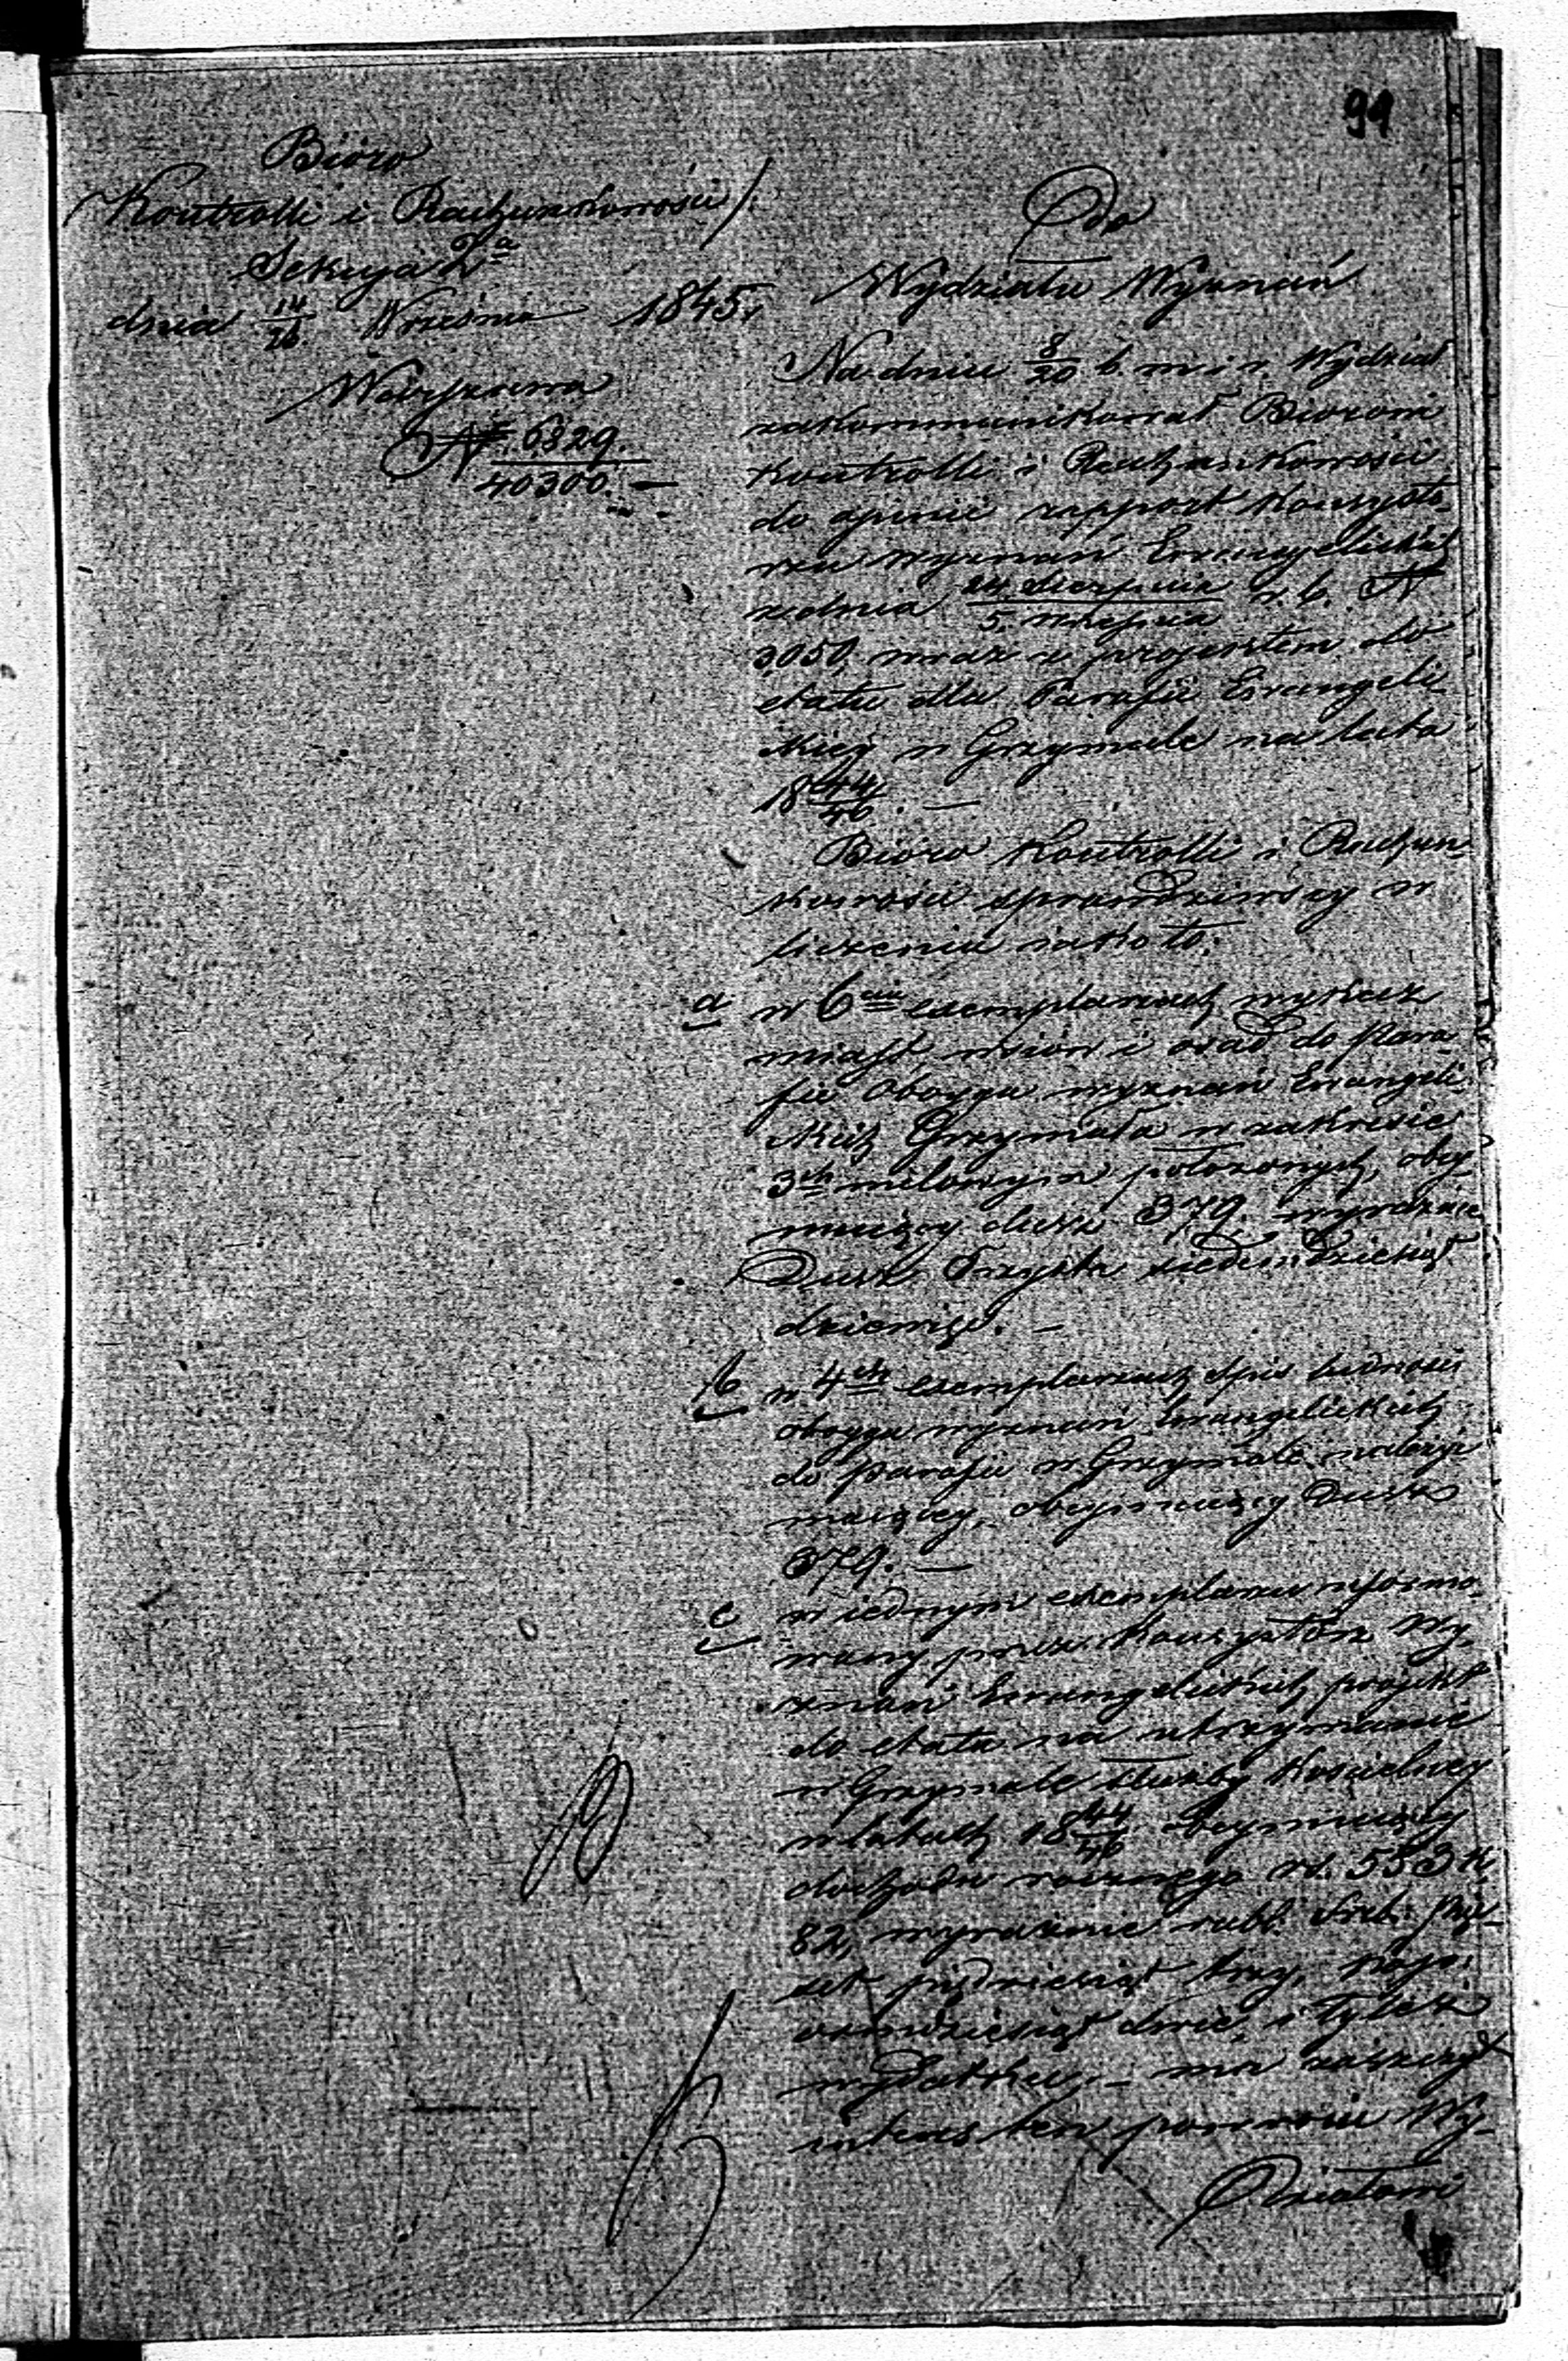 91
Bióro
Kontrolli i Rachunkowości
Sekcya 2a
dnia 14/26 Września 1845 r
Wowyzowa
N 6329
40300. —
Do
Wydziału Wyznań
Na dniu 8/20 b. m. i r. Wydział
zakommunikował Biorowi
Kontrolli i Rachunkowości
do opinii rapport Konsysto-
rza wyznań Ewangelickich
z dnia 24 Sierpnia / 5 Września r. b. N
3050, wraz z projektem do
etatu dla Parafii Ewangeli
ckiej w Grzymale na lata
1844/46. —
Bióro Kontrolli i Rachun-
kowości sprawdziwszy w
liczeniu iako to:
a w 6ciu exemplarzach wykaz
miast, wsiow i osad do Para-
fii obojga wyznań Ewangeli
ckich Grzymała w zakresie
3ch milowym położonych, obey-
muiący dusz 379. wyraźnie
Dusz Trzysta siedemdziesiąt
dziewięć. —
b w 4ch exemplarzach spis ludności
obojga wyznań Ewangelickich
do parafii w Grzymale należyć
maiącey, obejmuiący Dusz
379. —
c w iednym exemplarzu uformo-
wany przez Konsystorz Wy-
znań Ewangelickich projekt
do etatu na utrzymanie
w Grzymale służby Kościelney
w latach 1844/46 obeymuiący
dochodu rocznego rs. 553 k.
82, wyraźnie rubl. śreb. pięć-
set pięćdziesiąt trzy, kop.
ośmdziesiąt dwie, i tyleż
wydatku, — ma zaszczyt
interes ten powrócić Wy-
działowi